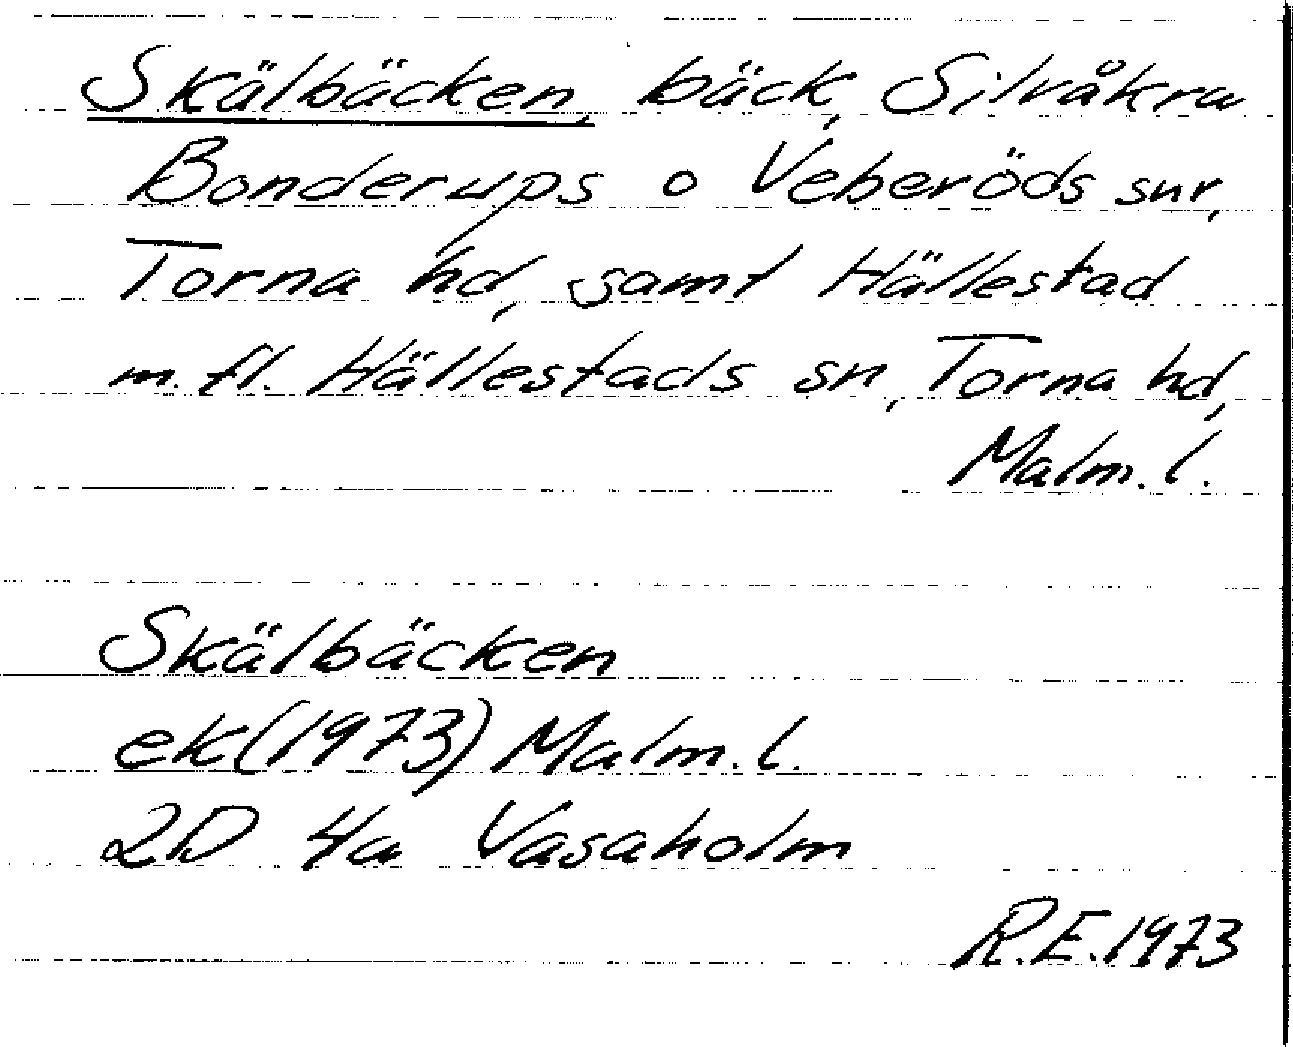 Skälbäcken, bäck, Silvåkra
Bonderups o Veberöds snr,
Torna hd, samt Hällestad
m. fl. Hällestads sn, Torna hd,
Malm. l.
Skälbäcken
ek (1973) Malm. l.
2D 4a Vasaholm
R.E. 1973